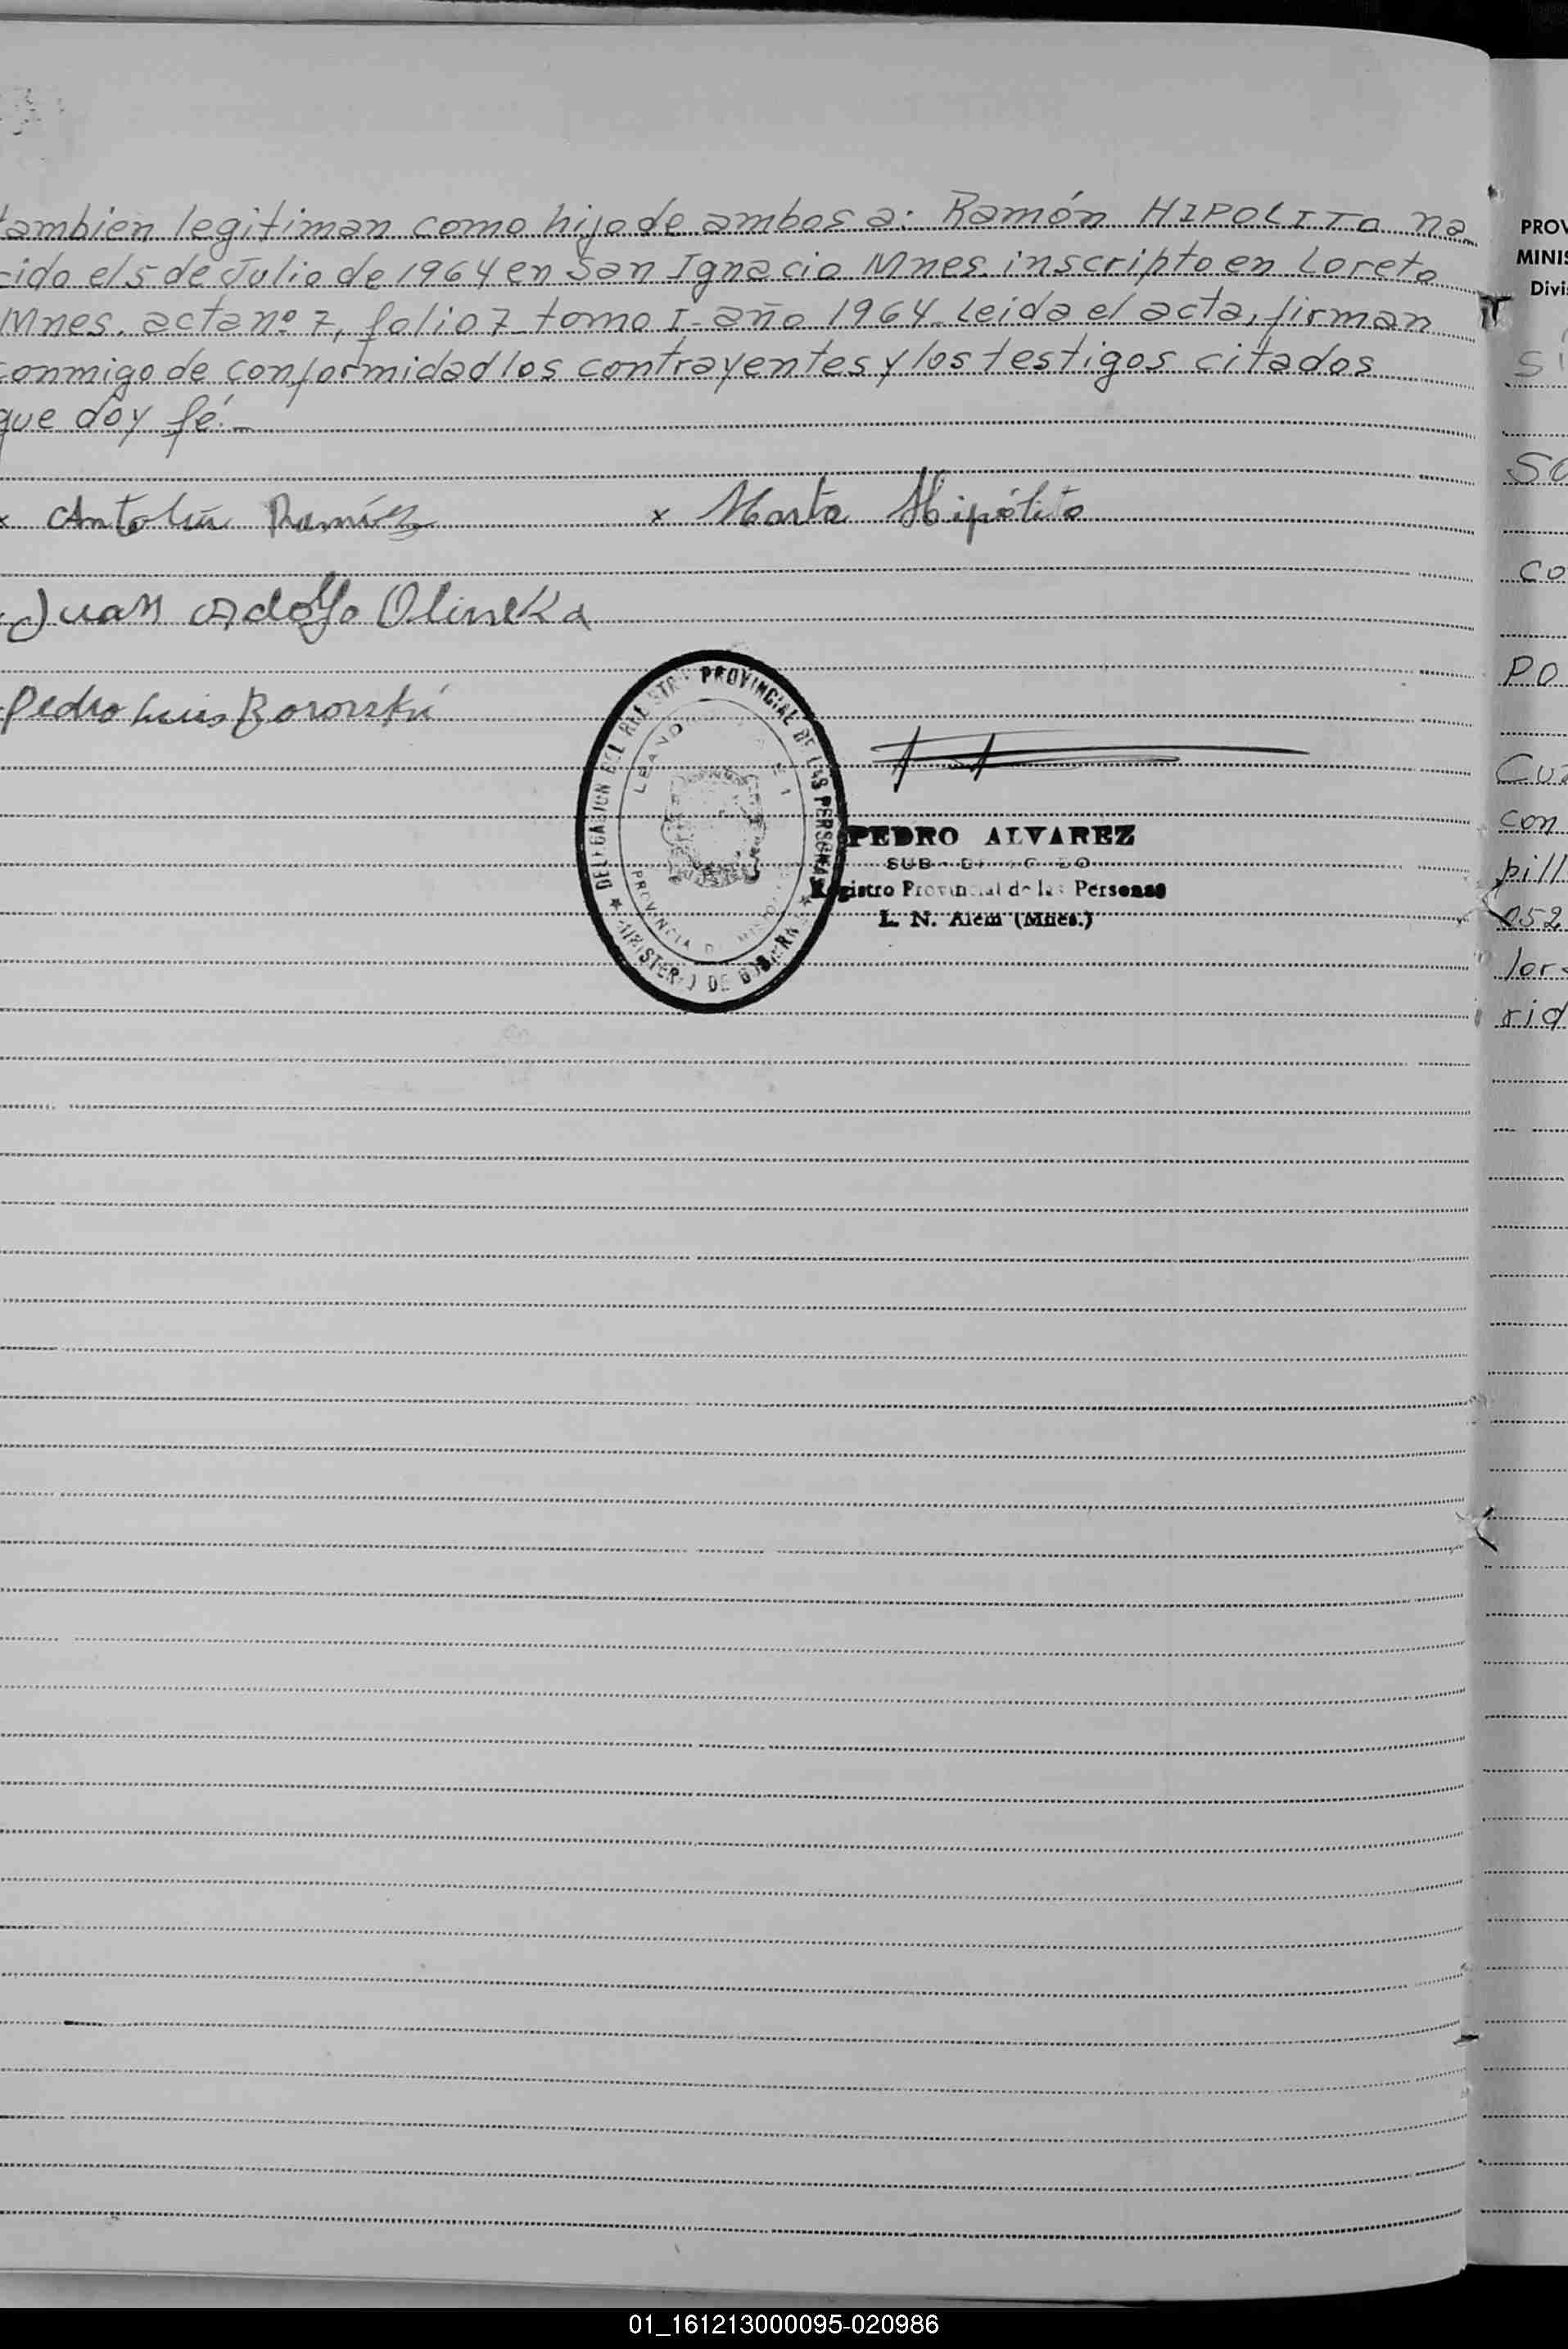 tambien legitiman como hijo de ambos a: Ramón HIPOLITO na-
cido el 5 de Julio de 1964 en San Ignacio Mnes. inscripto en Loreto
Mnes. acta nº 7, folio 7 tomo I- año 1964. Leida el acta, firman
conmigo de conformidad los contrayentes y los testigos citados
que doy fé.-
x Antolín Ramírez x Marta Hipólito
Juan Adolfo Olineka
Pedro Luis Borowski
DELEGACION DEL REGISTRO PROVINCIAL DE LAS PERSONAS
PROVINCIA DE MISIONES
MINISTERIO DE GOBIERNO
PEDRO ALVAREZ
SUB-DELEGADO
Registro Provincial de las Personas
L. N. Alem (Mnes.)
PROV
MINIS
Divi
Si
So
co
Po
con
pill
052
lor
rid
01_161213000095-020986